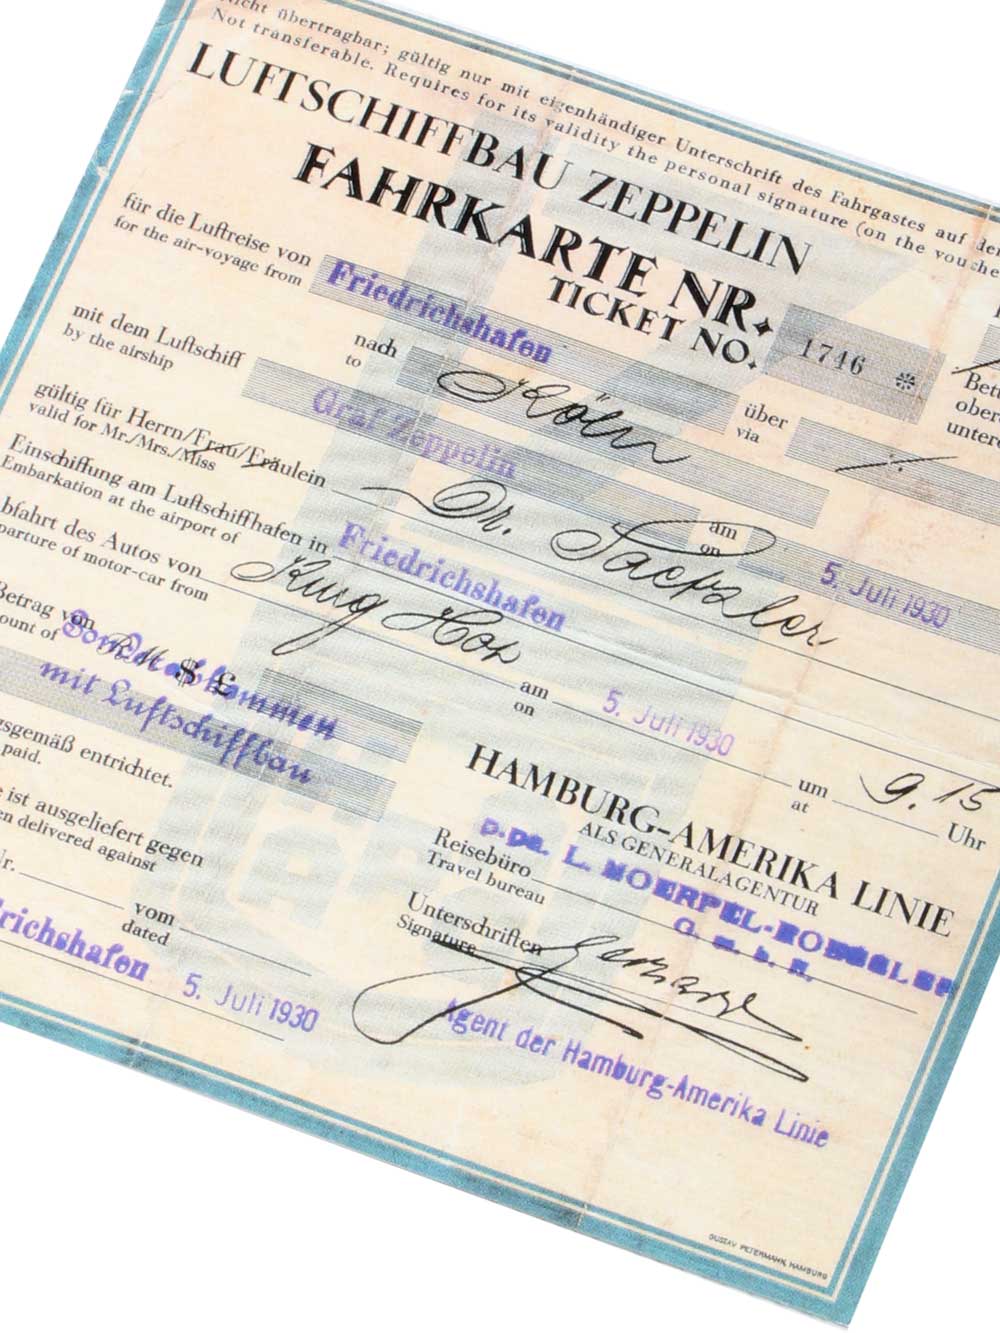 Nicht übertragbar; gültig nur mit eigenhändiger Unterschrift des Fahrgastes auf
Not transferable. Requires for its validity the personal signature (on the
LUFTSCHIFFBAU ZEPPELIN
FAHRKARTE NR. 1746
TICKET NO.
für die Luftreise von Friedrichshafen nach Köln über
for the air-voyage from to via
mit dem Luftschiff Graf Zeppelin am 5. Juli 1930
by the airship on
gültig für Herrn/Frau/Fräulein Dr. Sackzler
valid for Mr./Mrs./Miss
Einschiffung am Luftschiffhafen in Friedrichshafen
Embarkation at the airport of
bfahrt des Autos von Kurg Hof am 5. Juli 1930 um 9.15 Uhr
parture of motor-car from on at
Betrag von RM $ £
ount of
Sonderabkommen
mit Luftschiffbau
sgemäß entrichtet.
paid.
ist ausgeliefert gegen
en delivered against
Nr. vom
dated
drichshafen 5. Juli 1930
HAMBURG-AMERIKA LINIE
ALS GENERALAGENTUR
Reisebüro
Travel bureau
Unterschriften
Signature
Agent der Hamburg-Amerika Linie
GUSTAV PETERMANN, HAMBURG